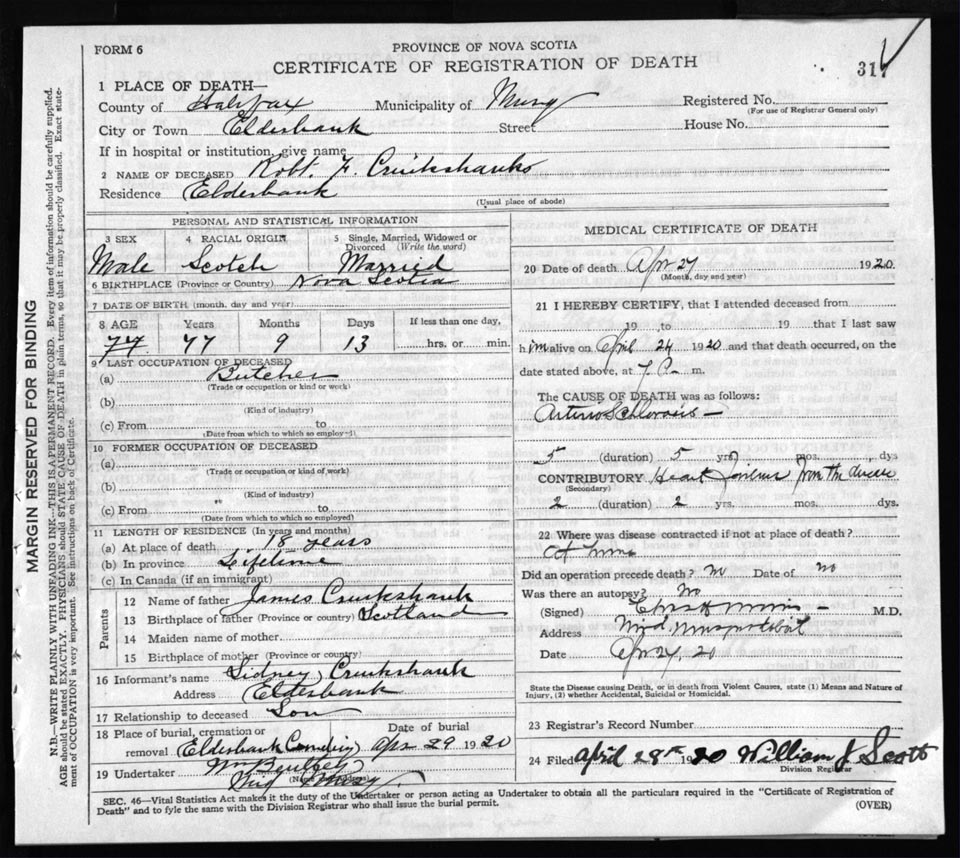 FORM 6
PROVINCE OF NOVA SCOTIA
CERTIFICATE OF REGISTRATION OF DEATH
317
1 PLACE OF DEATH—
County of Halifax Municipality of Musq Registered No.
(For use of Registrar General only)
City or Town Elderbank Street House No.
If in hospital or institution, give name
2 NAME OF DECEASED Robt. F. Cruikshanks
Residence Elderbank
(Usual place of abode)
PERSONAL AND STATISTICAL INFORMATION
3 SEX 4 RACIAL ORIGIN 5 Single, Married, Widowed or
Divorced (Write the word)
Male Scotch Married
6 BIRTHPLACE (Province or Country) Nova Scotia
7 DATE OF BIRTH (month, day and year)
8 AGE Years Months Days If less than one day,
77 77 9 13 hrs. or min.
9 LAST OCCUPATION OF DECEASED
(a) Butcher
(Trade or occupation or kind or work)
(b)
(Kind of industry)
(c) From to
(Date from which to which so employed)
10 FORMER OCCUPATION OF DECEASED
(a)
(Trade or occupation or kind of work)
(b)
(Kind of industry)
(c) From to
(Date from which to which so employed)
11 LENGTH OF RESIDENCE (In years and months)
(a) At place of death 18 years
(b) In province Lifetime
(c) In Canada (if an immigrant)
Parents
12 Name of father James Cruikshank
13 Birthplace of father (Province or country) Scotland
14 Maiden name of mother
15 Birthplace of mother (Province or country)
16 Informant's name Sidney Cruikshank
Address Elderbank
17 Relationship to deceased Son
18 Place of burial, cremation or Date of burial
removal Elderbank Apr 29 1920
19 Undertaker Wm
MEDICAL CERTIFICATE OF DEATH
20 Date of death Apr 27 1920
(Month, day and year)
21 I HEREBY CERTIFY, that I attended deceased from
19 to 19 that I last saw
him alive on April 24 1920 and that death occurred, on the
date stated above, at 7 P m.
The CAUSE OF DEATH was as follows:
Arterio Schlorosis —
5 (duration) 5 yrs mos. dys
CONTRIBUTORY Heart from the
(Secondary)
2 (duration) 2 yrs. mos. dys.
22 Where was disease contracted if not at place of death?
At home
Did an operation precede death? No Date of no
Was there an autopsy? No
(Signed) M.D.
Address
Date Apr 27, 20
State the Disease causing Death, or in death from Violent Causes, state (1) Means and Nature of
Injury, (2) whether Accidental, Suicidal or Homicidal.
23 Registrar's Record Number
24 Filed April 28th 1920 William J Scott
Division Registrar
SEC. 46—Vital Statistics Act makes it the duty of the Undertaker or person acting as Undertaker to obtain all the particulars required in the "Certificate of Registration of
Death" and to fyle the same with the Division Registrar who shall issue the burial permit.
(OVER)
MARGIN RESERVED FOR BINDING
N.B.—WRITE PLAINLY WITH UNFADING INK—THIS IS A PERMANENT RECORD. Every item of information should be carefully supplied.
AGE should be stated EXACTLY. PHYSICIANS should STATE CAUSE OF DEATH in plain terms, so that it may be properly classified. Exact state-
ment of OCCUPATION is very important. See instructions on back of Certificate.